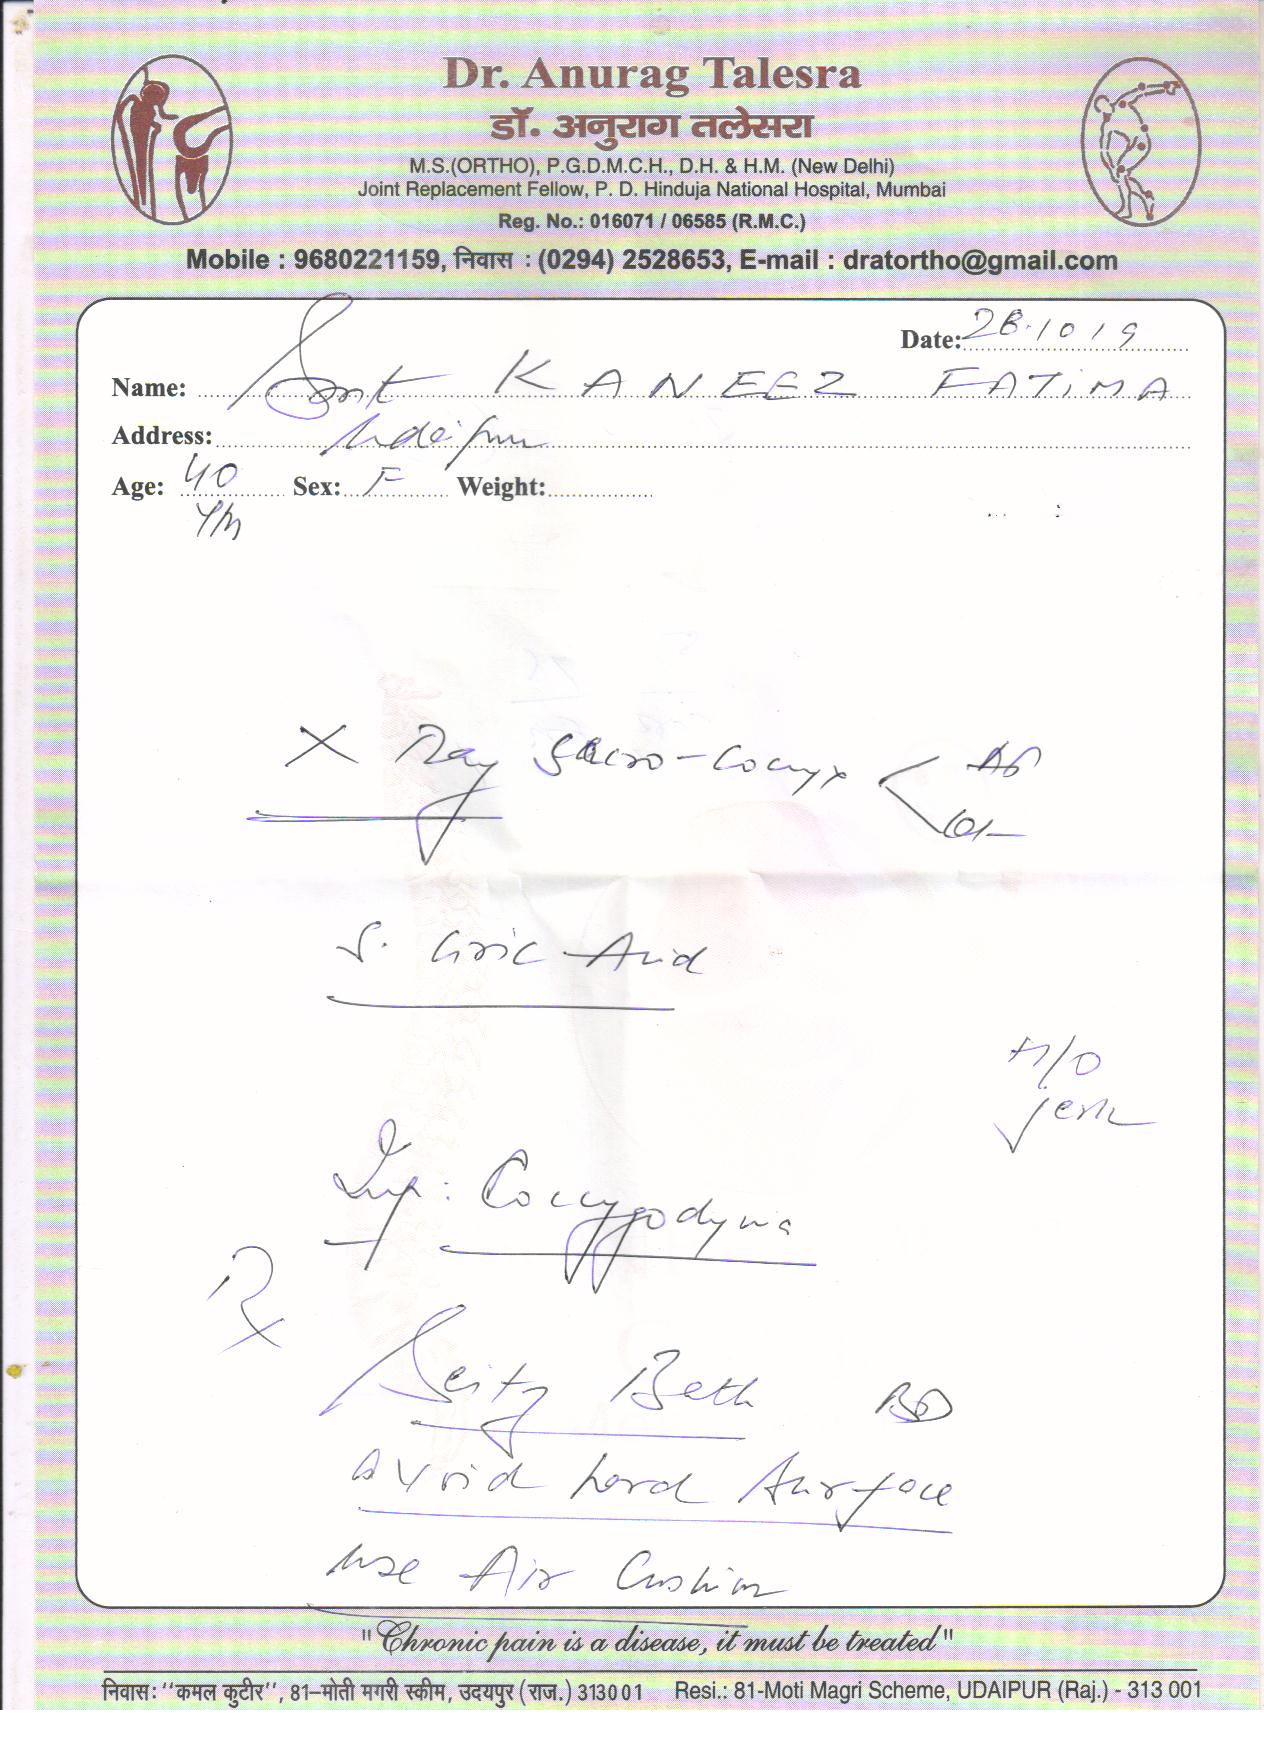 Dr. Anurag Talesra
डॉ. अनुराग तलेसरा
M.S.(ORTHO), P.G.D.M.C.H., D.H. & H.M. (New Delhi)
Joint Replacement Fellow, P. D. Hinduja National Hospital, Mumbai
Reg. No.: 016071 / 06585 (R.M.C.)
Mobile : 9680221159, निवास : (0294) 2528653, E-mail : dratortho@gmail.com
Date: 28.10 19
Name: Smt KANEEZ FATIMA
Address: Udaipur
Age: 40 Sex: F Weight:
X Ray Sacro-Coccyx < AP
Lat
S. Uric Acid
H/O
jerk
Imp: Coccygodynia
Rx
Seitz Bath BD
avoid hard surface
use Air Cushion
"Chronic pain is a disease, it must be treated"
निवास: ''कमल कुटीर'', 81-मोती मगरी स्कीम, उदयपुर (राज.) 313001 Resi.: 81-Moti Magri Scheme, UDAIPUR (Raj.) - 313 001